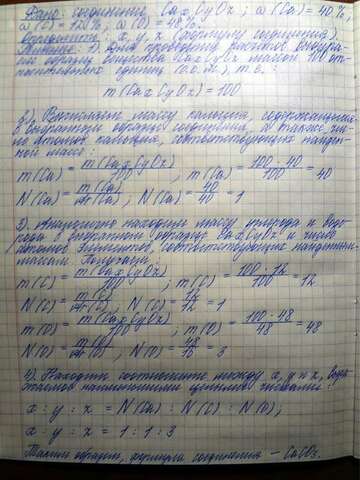 Дано: соединение CaxCyOz; ω(Ca) = 40%,
ω(C) = 12%, ω(O) = 48%.
Определить: x, y, z (формулу соединения).
Решение: 1) Для проведения расчётов выберем
образец вещества CaxCyOz массой 100 от-
носительных единиц (о.е.м.), т.е.:
m(CaxCyOz) = 100
2) Вычислим массу кальция, содержащегося
в выбранном образце соединения, а также чис-
ло атомов кальция, соответствующих найден-
ной массе:
m(Ca) = m(CaxCyOz) / 100 ; m(Ca) = 100 · 40 / 100 = 40
N(Ca) = m(Ca) / Ar(Ca) ; N(Ca) = 40 / 40 = 1
3) Аналогично находим массу углерода и
в выбранном образце CaxCyOz и число
атомов элементов, соответствующих найденным
массам. Получаем:
m(C) = m(CaxCyOz) / 100 ; m(C) = 100 · 12 / 100 = 12
N(C) = m(C) / Ar(C) ; N(C) = 12 / 12 = 1
m(O) = m(CaxCyOz) / 100 ; m(O) = 100 · 48 / 48 = 48
N(O) = m(O) / Ar(O) ; N(O) = 48 / 16 = 3
4) Находим соотношение между x, y и z, выра-
жаемое наименьшими целыми числами:
x : y : z = N(Ca) : N(C) : N(O);
x : y : z = 1 : 1 : 3
Таким образом, формула соединения – CaCO3.